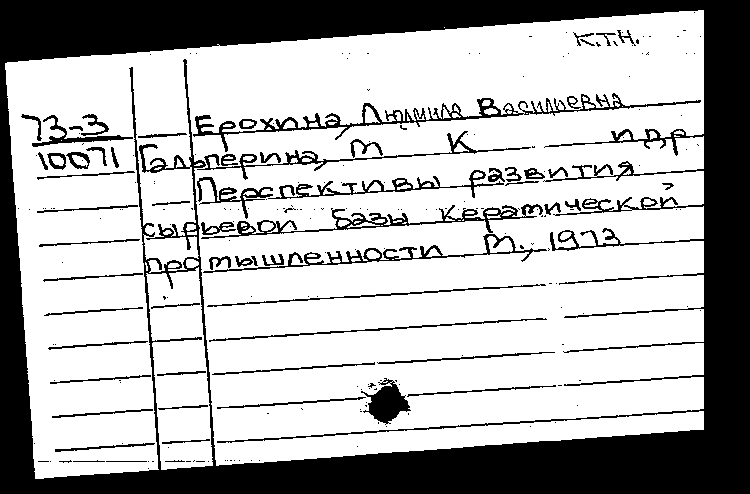 К.Т.Н.
73-3 Ерохина, Людмила Васильевна
10071 Гальперина, М К и др
Перспективы развития
сырьевой базы керамической
промышленности М., 1973